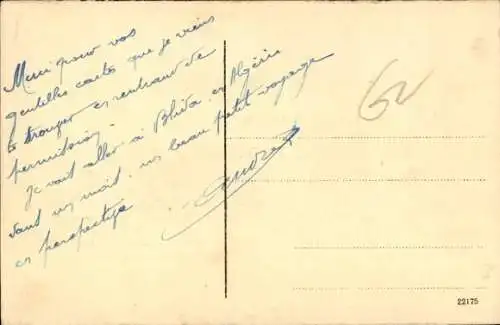 Merci pour vos
gentilles cartes que je viens
de trouver en rentrant de
permission.
Je vait aller à Blida en Algérie
dans un mois. un beau petit voyage
en perspective
André
62
22175